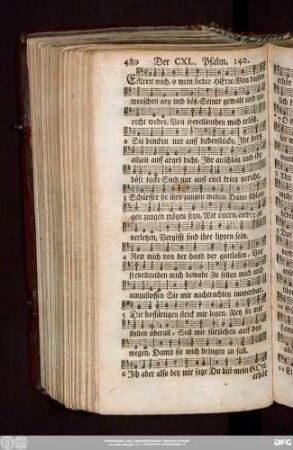 480 Der CXL. Psalm. 140.
ERrett mich, o mein lieber HErr, Von diesen
menschen arg und bös, Seiner gewalt und un-
recht wehre, Von frevellenthen mich erlös.
2 Sie dencken nur auff bubenstück, Ihr hertz
allzeit auff arges dicht, Ihr anschläg und ihr
böse tück Sind nur auff eitel krieg gericht.
3 Schärffer sie ihre zungen wetzen, Dann schlan-
gen zungen mögen seyn, Mit ottern, andre zu
verletzen, Vergifft sind ihre lippen fein.
4 Rett mich von der hand der gottlosen, Vor
frevellenthen mich bewahr, In fellen mich und
umzustossen Sie mir nachtrachten immerdar.
5 Die hoffärtigen strick mir legen, Netz sie mir
stellen überall, Seil mir fürziehen auff den
wegen, Damit sie mich bringen zu fall.
6 Ich aber also bey mir sage: Du bist mein GOtt,
erhör